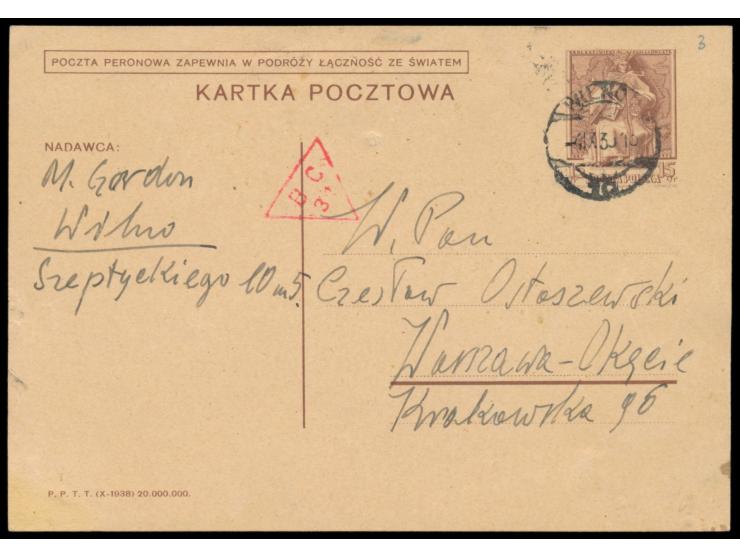 3
POCZTA PERONOWA ZAPEWNIA W PODRÓŻY ŁĄCZNOŚĆ ZE ŚWIATEM
KARTKA POCZTOWA
WILNO
15
NADAWCA:
M. Gordon
Wilno
Szeptyckiego 10 m 5.
B C
3
W. Pan
Czesław Ostaszewski
Warszawa-Okęcie
Krakowska 96
P. P. T. T. (X-1938) 20.000.000.